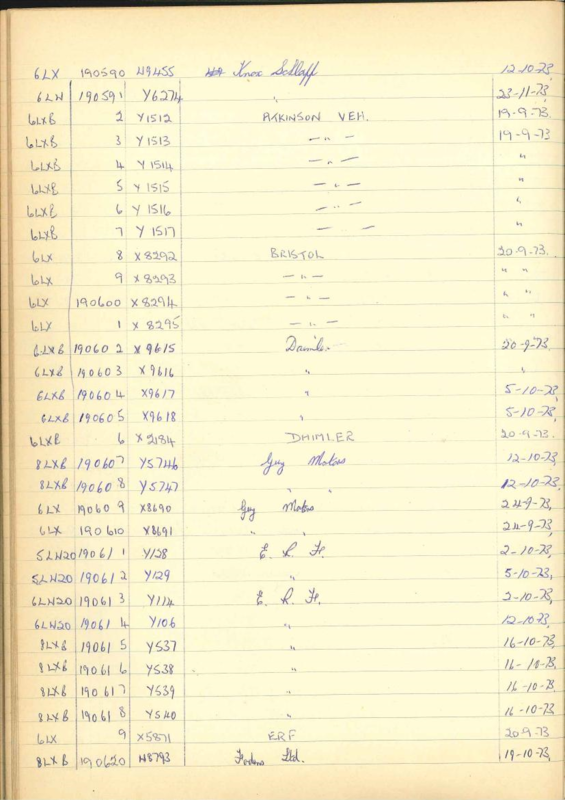 6LX 190590 W9455 Knox Schlapp 12-10-73
6LW 190591 Y6274 " 23-11-73
6LXB 2 Y1512 ATKINSON VEH. 19-9-73.
6LXB 3 Y1513 — " — 19-9-73
6LXB 4 Y1514 — " — "
6LXB 5 Y1515 — " — "
6LXB 6 Y1516 — " — "
6LXB 7 Y1517 — — "
6LX 8 X8292 BRISTOL 20-9-73.
6LX 9 X8293 — " — " "
6LX 190600 X8294 — " — " "
6LX 1 X8295 — " — " "
6LXB 190602 X9615 Daimler 20-9-73.
6LXB 190603 X9616 " "
6LXB 190604 X9617 " 5-10-73,
6LXB 190605 X9618 " 5-10-73,
6LXB 6 X2184 DAIMLER 20-9-73.
8LXB 190607 Y5746 Guy Motors 12-10-73,
8LXB 190608 Y5747 " " 12-10-73,
6LX 190609 X8690 Guy Motors 24-9-73,
6LX 190610 X8691 " " 24-9-73,
5LW20 190611 Y128 E. R. F. 2-10-73,
5LW20 190612 Y129 " 5-10-73,
6LW20 190613 Y114 E. R. F. 2-10-73,
6LW20 190614 Y106 " 12-10-73,
8LXB 190615 Y537 " 16-10-73,
8LXB 190616 Y538 " 16-10-73,
8LXB 190617 Y539 16-10-73,
8LXB 190618 Y540 " 16-10-73,
6LX 9 X5871 ERF 20-9-73
8LXB 190620 W8793 Fodens Ltd. 19-10-73,